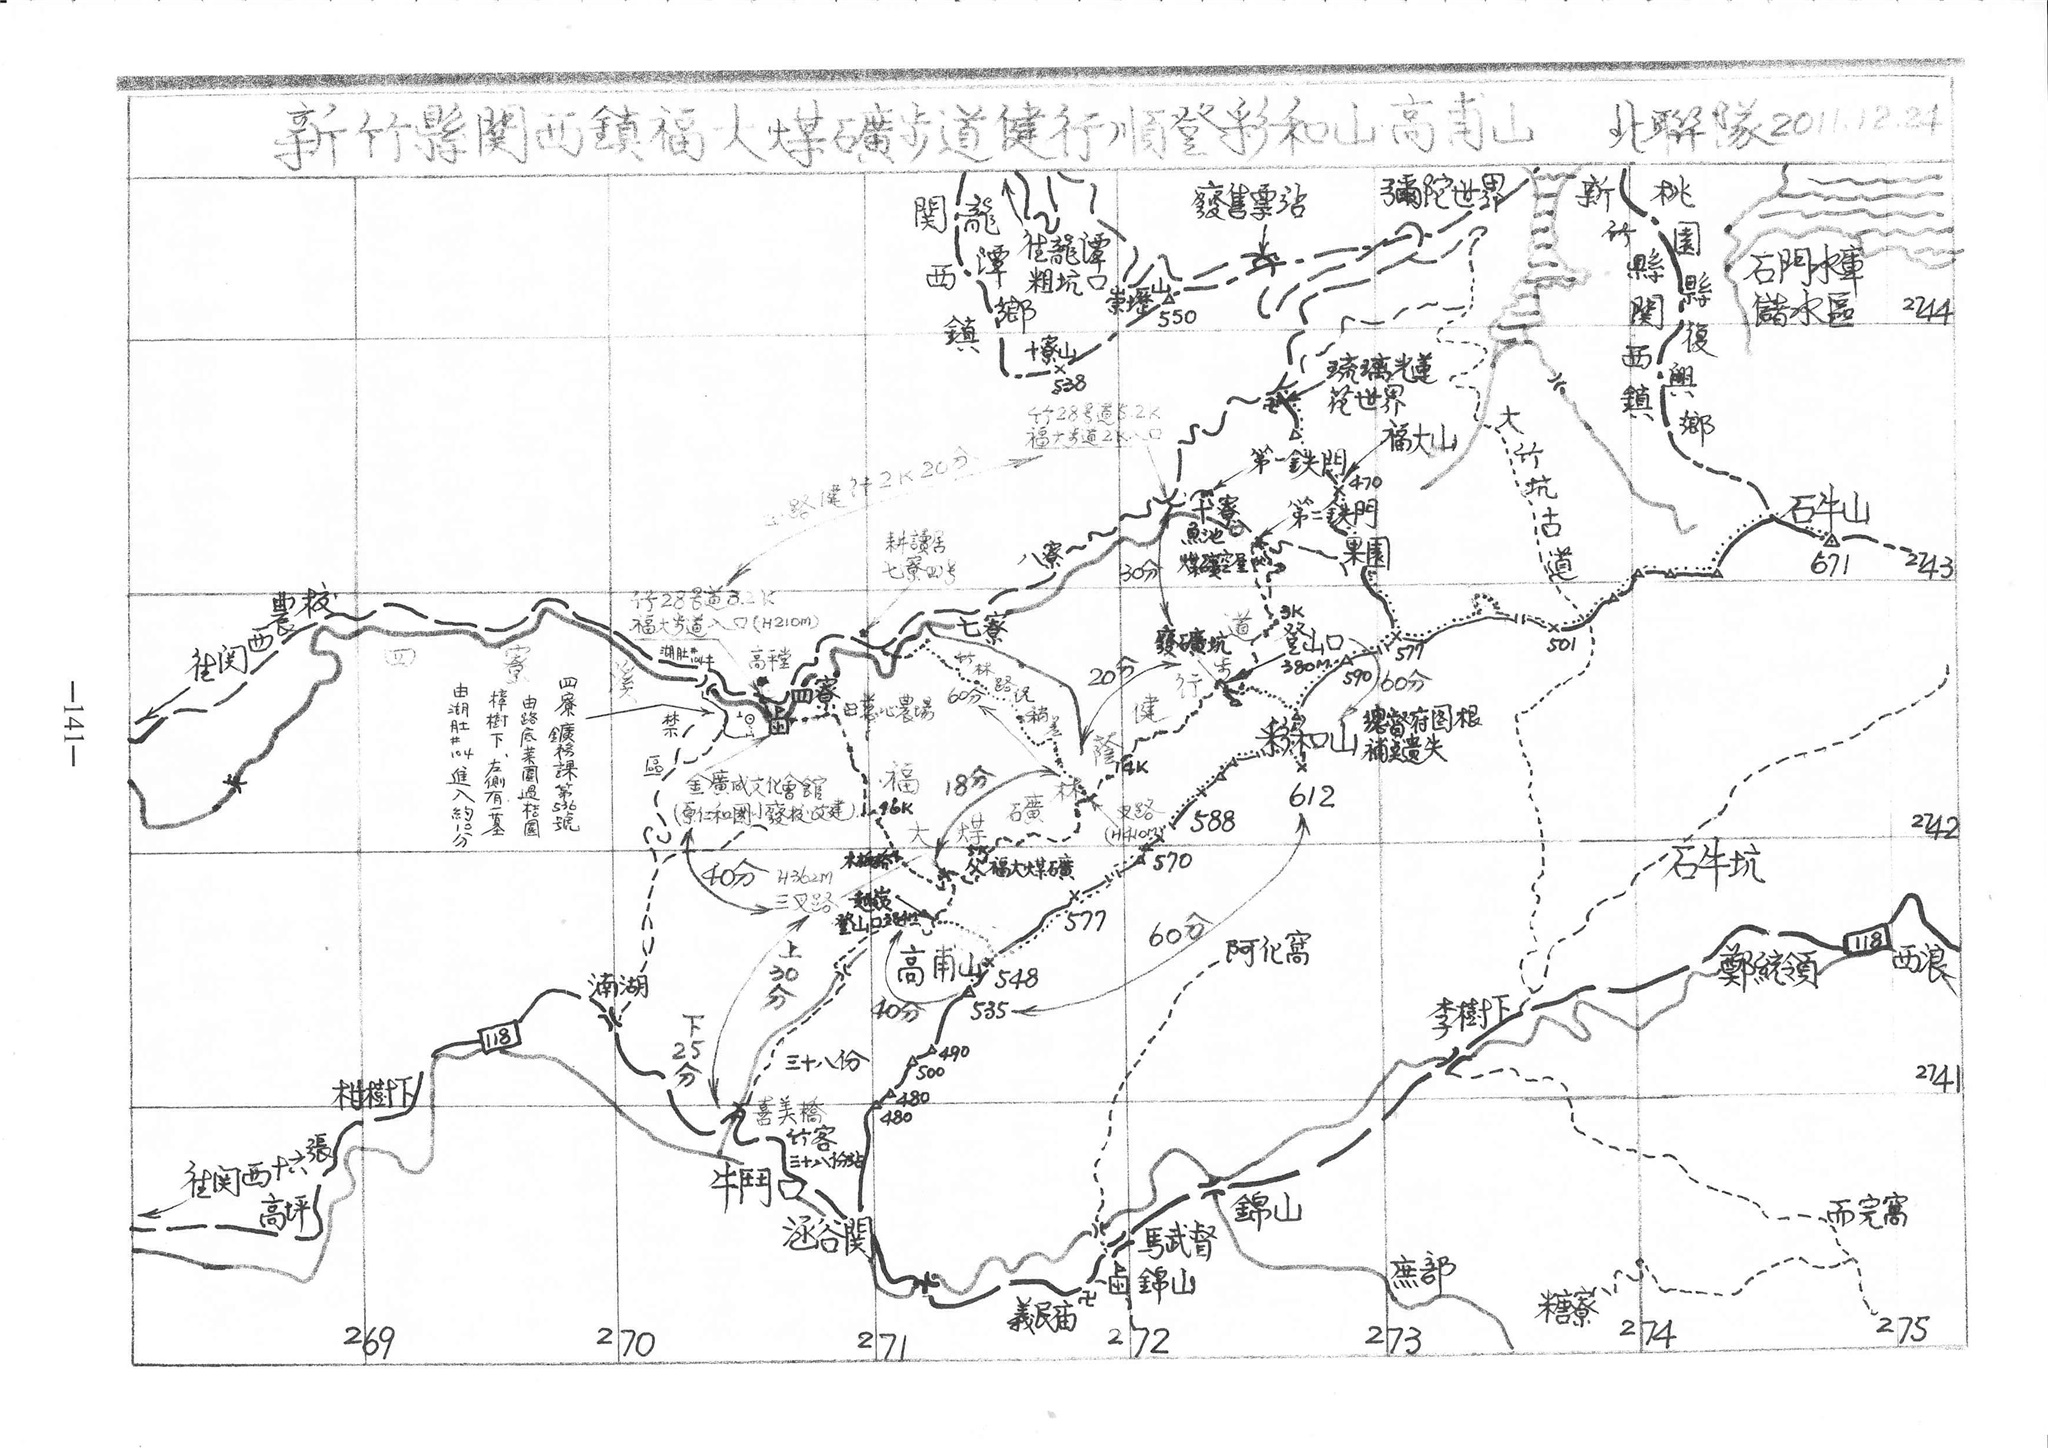 新竹縣関西鎮福大煤礦步道健行順登彩和山高甫山
北聯隊2011.12.24
関西鎮
龍潭鄉
往龍潭
粗坑口
廢售票站
彌陀世界
新竹縣関西鎮
桃園縣復興鄉
石門水庫
儲水區
2744
崇壢山
550
十寮山
538
琉璃光蓮
花世界
竹28号道5.2K
福大步道2K入口
福大山
470
第一鉄門
大竹坑古道
路健行2K20分
十寮
魚池
煤礦空屋
第二鉄門
果園
石牛山
671
2743
耕讀居
七寮四号
八寮
30分
農校
往関西
竹28号道3.2K
福大步道入口(H210m)
七寮
廢礦坑
3K
登山口
380m
577
501
590
60分
四寮溪
高平堂
四寮
竹林路況稍差
60分
20分
福大煤礦林蔭健行步道
彩和山
612
總督府図根
補点遺失
四寮鑛務課第536號
由路底菜園過桔園
樟樹下、左側有一墓
由湖肚#104進入約10分
禁區
日慈心農場
金廣成文化會館
(原仁和國小廢校改建)
18分
1.4K
叉路
(H410m)
588
2742
570
40分
H362m
三叉路
福大煤礦
越嶺
登山口
577
石牛坑
60分
阿化窩
上30分
高甫山
548
535
40分
118
西浪
鄭統領
湳湖
下25分
三十八份
490
500
480
480
李樹下
118
2741
柑樹下
喜美橋
竹客
三十八份站
張
往関西十六
高坪
牛鬥口
涵谷関
錦山
馬武督
錦山
而完窩
庶部
糖寮
義民庙
269
270
271
272
273
274
275
—141—